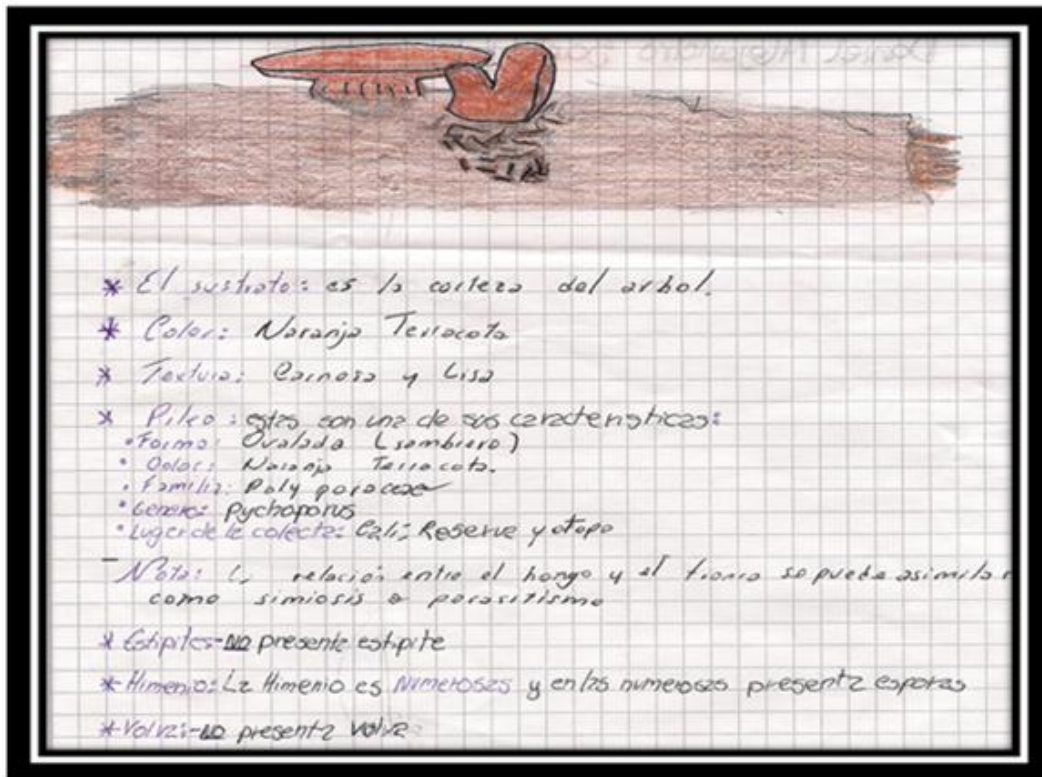 * El sustrato: es la corteza del arbol.
* Color: Naranja Terracota
* Textura: Carnosa y Lisa
* Pileo: estas son una de sus caracteristicas:
• Forma: Ovalada (sombrero)
• Color: Naranja Terracota.
• Familia: Polyporaceae
• Genero: Pychoporus
• Lugar de la colecta: Cali; Reserve
- Nota: La relación entre el hongo y el tronco se puede asimilar
como simiosis o parasitismo
* Estipites-NO presente estipite
* Himenio: La Himenio es Numerosas y en las numerosas presenta esporas
* Volva:-NO presenta volva